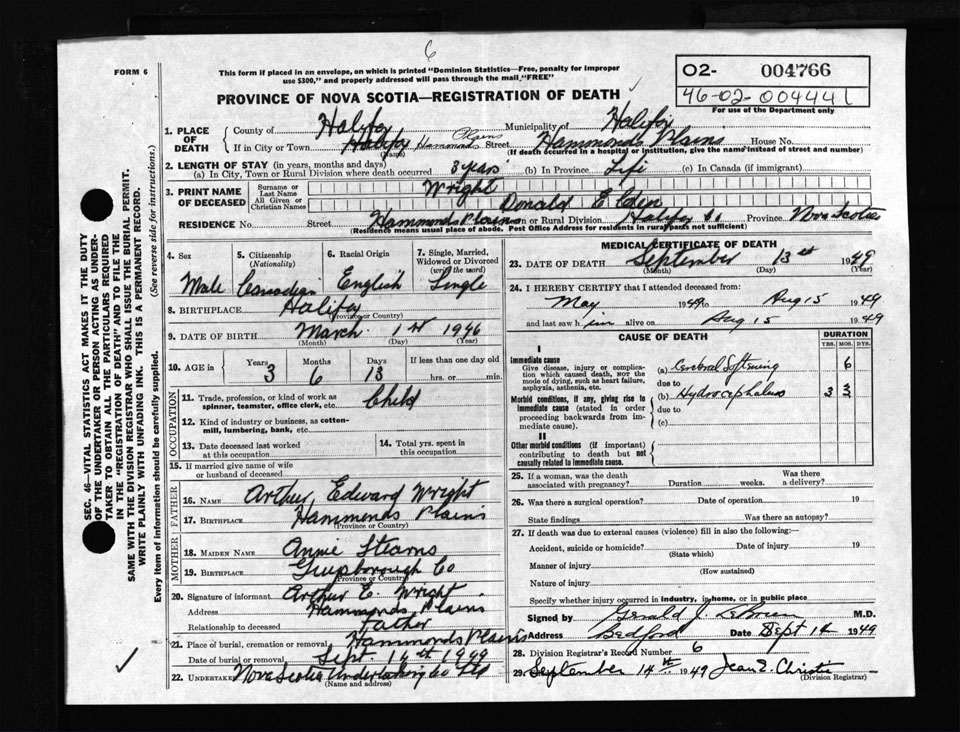 6
FORM 6
This form if placed in an envelope, on which is printed "Dominion Statistics—Free, penalty for improper
use $300," and properly addressed will pass through the mail "FREE"
02- 004766
46-02-004441
For use of the Department only
PROVINCE OF NOVA SCOTIA—REGISTRATION OF DEATH
1. PLACE OF DEATH
County of Halifax Municipality of Halifax
If in City or Town Halifax Hammonds Plains Street Hammonds Plains House No.
(Name) (If death occurred in a hospital or institution, give the name instead of street and number)
2. LENGTH OF STAY (in years, months and days)
(a) In City, Town or Rural Division where death occurred 3 years (b) In Province Life (c) In Canada (if immigrant)
3. PRINT NAME OF DECEASED
Surname or Last Name Wright
All Given or Christian Names Donald Elden
RESIDENCE No. Street Hammonds Plains or Rural Division Halifax Co Province Nova Scotia
(Residence means usual place of abode. Post Office Address for residents in rural parts not sufficient)
4. Sex Male
5. Citizenship (Nationality) Canadian
6. Racial Origin English
7. Single, Married, Widowed or Divorced (write the word) Single
8. BIRTHPLACE Halifax
(Province or Country)
9. DATE OF BIRTH March 1st 1946
(Month) (Day) (Year)
10. AGE in Years 3 Months 6 Days 13 If less than one day old hrs. or min.
OCCUPATION
11. Trade, profession, or kind of work as spinner, teamster, office clerk, etc. Child
12. Kind of industry or business, as cotton-mill, lumbering, bank, etc.
13. Date deceased last worked at this occupation
14. Total yrs. spent in this occupation
15. If married give name of wife or husband of deceased
FATHER
16. NAME Arthur Edward Wright
17. BIRTHPLACE Hammonds Plains
(Province or Country)
MOTHER
18. MAIDEN NAME Annie Stearns
19. BIRTHPLACE Guysborough Co
(Province or Country)
20. Signature of informant Arthur E. Wright
Address Hammonds Plains
Relationship to deceased Father
21. Place of burial, cremation or removal Hammonds Plains
Date of burial or removal Sept. 14th 1949
22. UNDERTAKER Nova Scotia Undertaking Co Ltd
(Name and address)
MEDICAL CERTIFICATE OF DEATH
23. DATE OF DEATH September 13th 1949
(Month) (Day) (Year)
24. I HEREBY CERTIFY that I attended deceased from:
May 1949 to Aug 15 1949
and last saw him alive on Aug 15 1949
CAUSE OF DEATH
DURATION
YRS. MOS. DYS.
I
Immediate cause
Give disease, injury or complication which caused death, NOT the mode of dying, such as heart failure, asphyxia, asthenia, etc.
(a) Cerebral Softening 6
due to
Morbid conditions, if any, giving rise to immediate cause (stated in order proceeding backwards from immediate cause).
(b) Hydrocephalus 3 3
due to
(c)
II
Other morbid conditions (if important) contributing to death but not causally related to immediate cause.
25. If a woman, was the death associated with pregnancy? Duration weeks. Was there a delivery?
26. Was there a surgical operation? Date of operation 19
State findings Was there an autopsy?
27. If death was due to external causes (violence) fill in also the following:—
Accident, suicide or homicide? Date of injury 19
(State which)
Manner of injury
(How sustained)
Nature of injury
Specify whether injury occurred in industry, in home, or in public place
Signed by Gerald J. LeBrun M.D.
Address Bedford Date Sept 14 1949
28. Division Registrar's Record Number 6
29. September 14th 1949 Jean E. Christie
(Division Registrar)
SEC. 46—VITAL STATISTICS ACT MAKES IT THE DUTY
OF THE UNDERTAKER OR PERSON ACTING AS UNDER-
TAKER TO OBTAIN ALL THE PARTICULARS REQUIRED
IN THE "REGISTRATION OF DEATH" AND TO FILE THE
SAME WITH THE DIVISION REGISTRAR WHO SHALL ISSUE THE BURIAL PERMIT.
WRITE PLAINLY WITH UNFADING INK. THIS IS A PERMANENT RECORD.
Every item of information should be carefully supplied. (See reverse side for instructions.)